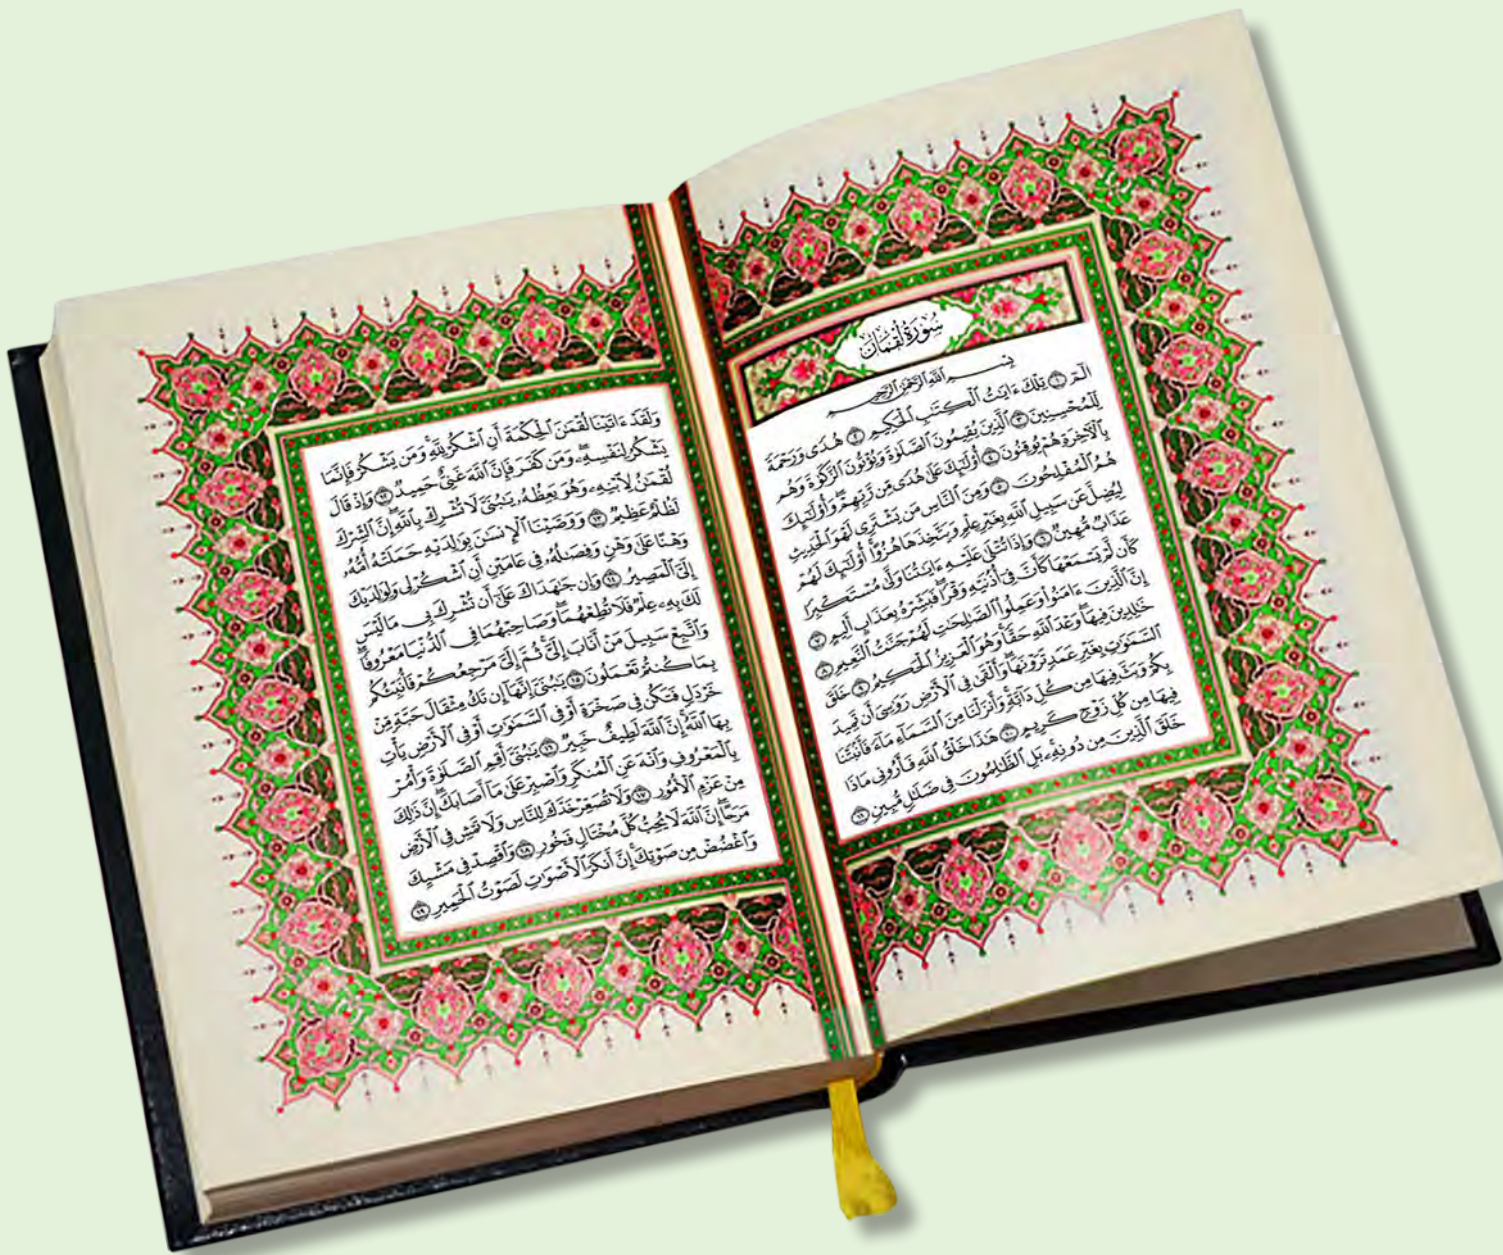 سُورَةُ لُقْمَان
بِسْمِ ٱللَّهِ ٱلرَّحْمَٰنِ ٱلرَّحِيمِ
الٓمٓ ١ تِلْكَ ءَايَٰتُ ٱلْكِتَٰبِ ٱلْحَكِيمِ ٢ هُدًى وَرَحْمَةً
لِّلْمُحْسِنِينَ ٣ ٱلَّذِينَ يُقِيمُونَ ٱلصَّلَوٰةَ وَيُؤْتُونَ ٱلزَّكَوٰةَ وَهُم
بِٱلْءَاخِرَةِ هُمْ يُوقِنُونَ ٤ أُو۟لَٰٓئِكَ عَلَىٰ هُدًى مِّن رَّبِّهِمْ ۖ وَأُو۟لَٰٓئِكَ
هُمُ ٱلْمُفْلِحُونَ ٥ وَمِنَ ٱلنَّاسِ مَن يَشْتَرِى لَهْوَ ٱلْحَدِيثِ
لِيُضِلَّ عَن سَبِيلِ ٱللَّهِ بِغَيْرِ عِلْمٍ وَيَتَّخِذَهَا هُزُوًا ۚ أُو۟لَٰٓئِكَ لَهُمْ
عَذَابٌ مُّهِينٌ ٦ وَإِذَا تُتْلَىٰ عَلَيْهِ ءَايَٰتُنَا وَلَّىٰ مُسْتَكْبِرًا
كَأَن لَّمْ يَسْمَعْهَا كَأَنَّ فِىٓ أُذُنَيْهِ وَقْرًا ۖ فَبَشِّرْهُ بِعَذَابٍ أَلِيمٍ ٧
إِنَّ ٱلَّذِينَ ءَامَنُوا۟ وَعَمِلُوا۟ ٱلصَّٰلِحَٰتِ لَهُمْ جَنَّٰتُ ٱلنَّعِيمِ ٨
خَٰلِدِينَ فِيهَا ۖ وَعْدَ ٱللَّهِ حَقًّا ۚ وَهُوَ ٱلْعَزِيزُ ٱلْحَكِيمُ ٩ خَلَقَ
ٱلسَّمَٰوَٰتِ بِغَيْرِ عَمَدٍ تَرَوْنَهَا ۖ وَأَلْقَىٰ فِى ٱلْأَرْضِ رَوَٰسِىَ أَن تَمِيدَ
بِكُمْ وَبَثَّ فِيهَا مِن كُلِّ دَآبَّةٍ ۚ وَأَنزَلْنَا مِنَ ٱلسَّمَآءِ مَآءً فَأَنۢبَتْنَا
فِيهَا مِن كُلِّ زَوْجٍ كَرِيمٍ ١٠ هَٰذَا خَلْقُ ٱللَّهِ فَأَرُونِى مَاذَا
خَلَقَ ٱلَّذِينَ مِن دُونِهِۦ ۚ بَلِ ٱلظَّٰلِمُونَ فِى ضَلَٰلٍ مُّبِينٍ ١١
وَلَقَدْ ءَاتَيْنَا لُقْمَٰنَ ٱلْحِكْمَةَ أَنِ ٱشْكُرْ لِلَّهِ ۚ وَمَن يَشْكُرْ فَإِنَّمَا
يَشْكُرُ لِنَفْسِهِۦ ۖ وَمَن كَفَرَ فَإِنَّ ٱللَّهَ غَنِىٌّ حَمِيدٌ ١٢ وَإِذْ قَالَ
لُقْمَٰنُ لِٱبْنِهِۦ وَهُوَ يَعِظُهُۥ يَٰبُنَىَّ لَا تُشْرِكْ بِٱللَّهِ ۖ إِنَّ ٱلشِّرْكَ
لَظُلْمٌ عَظِيمٌ ١٣ وَوَصَّيْنَا ٱلْإِنسَٰنَ بِوَٰلِدَيْهِ حَمَلَتْهُ أُمُّهُۥ
وَهْنًا عَلَىٰ وَهْنٍ وَفِصَٰلُهُۥ فِى عَامَيْنِ أَنِ ٱشْكُرْ لِى وَلِوَٰلِدَيْكَ
إِلَىَّ ٱلْمَصِيرُ ١٤ وَإِن جَٰهَدَاكَ عَلَىٰٓ أَن تُشْرِكَ بِى مَا لَيْسَ
لَكَ بِهِۦ عِلْمٌ فَلَا تُطِعْهُمَا ۖ وَصَاحِبْهُمَا فِى ٱلدُّنْيَا مَعْرُوفًا ۖ
وَٱتَّبِعْ سَبِيلَ مَنْ أَنَابَ إِلَىَّ ۚ ثُمَّ إِلَىَّ مَرْجِعُكُمْ فَأُنَبِّئُكُم
بِمَا كُنتُمْ تَعْمَلُونَ ١٥ يَٰبُنَىَّ إِنَّهَآ إِن تَكُ مِثْقَالَ حَبَّةٍ مِّنْ
خَرْدَلٍ فَتَكُن فِى صَخْرَةٍ أَوْ فِى ٱلسَّمَٰوَٰتِ أَوْ فِى ٱلْأَرْضِ يَأْتِ
بِهَا ٱللَّهُ ۚ إِنَّ ٱللَّهَ لَطِيفٌ خَبِيرٌ ١٦ يَٰبُنَىَّ أَقِمِ ٱلصَّلَوٰةَ وَأْمُرْ
بِٱلْمَعْرُوفِ وَٱنْهَ عَنِ ٱلْمُنكَرِ وَٱصْبِرْ عَلَىٰ مَآ أَصَابَكَ ۖ إِنَّ ذَٰلِكَ
مِنْ عَزْمِ ٱلْأُمُورِ ١٧ وَلَا تُصَعِّرْ خَدَّكَ لِلنَّاسِ وَلَا تَمْشِ فِى ٱلْأَرْضِ
مَرَحًا ۖ إِنَّ ٱللَّهَ لَا يُحِبُّ كُلَّ مُخْتَالٍ فَخُورٍ ١٨ وَٱقْصِدْ فِى مَشْيِكَ
وَٱغْضُضْ مِن صَوْتِكَ ۚ إِنَّ أَنكَرَ ٱلْأَصْوَٰتِ لَصَوْتُ ٱلْحَمِيرِ ١٩